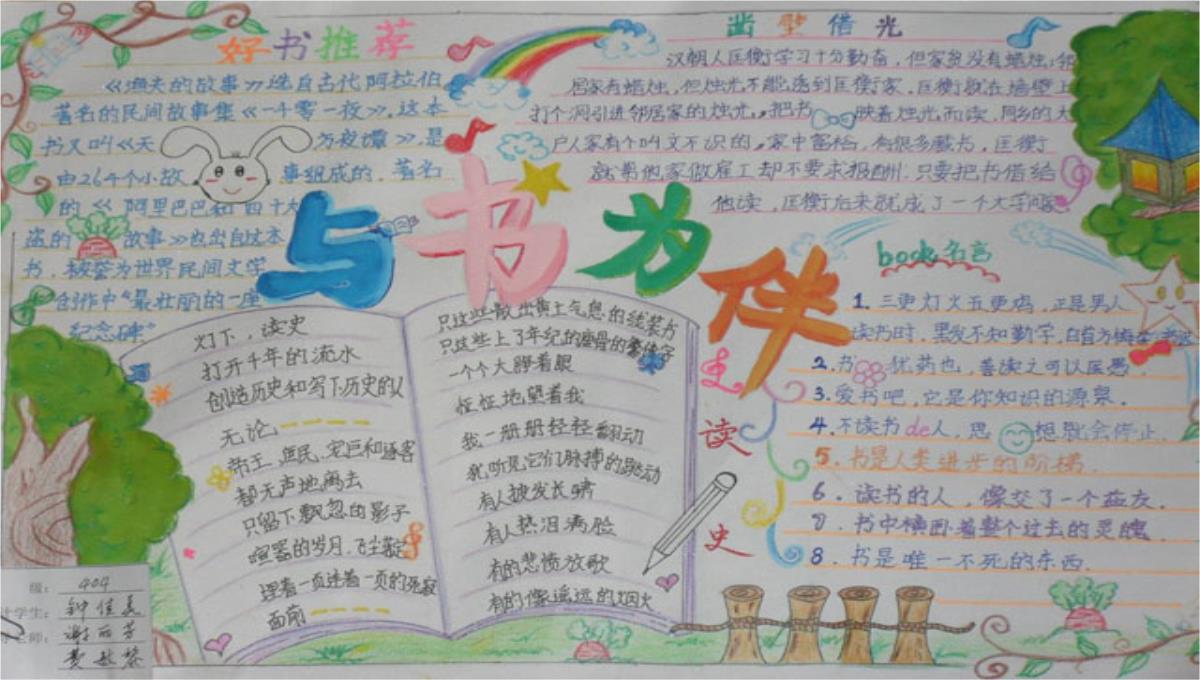 好书推荐
《渔夫的故事》选自古代阿拉伯
著名的民间故事集《一千零一夜》.这本
书又叫《天方夜谭》,是
由264个小故事组成的.著名
的《阿里巴巴和四十大
盗的故事》也出自这本
书.被誉为世界民间文学
创作中“最壮丽的一座
纪念碑”
凿壁借光
汉朝人匡衡学习十分勤奋,但家贫没有蜡烛;邻
居家有蜡烛,但烛光不能透到匡衡家.匡衡就在墙壁上
打个洞引进邻居家的烛光,把书映着烛光而读.同乡的大
户人家有个叫文不识的,家中富裕,有很多藏书,匡衡
就帮他家做雇工却不要求报酬.只要把书借给
他读,匡衡后来就成了一个大学问家.
与书为伴
灯下,读史
打开千年的流水
创造历史和写下历史的人
无论
帝王、庶民、宠臣和逐客
都无声地离去
只留下飘忽的影子
喧嚣的岁月.飞尘
埋着一页连着一页的死寂
面前
只这些散出黄土气息的线装书
只这些上了年纪的瘦骨的繁体字
一个个大睁着眼
怔怔地望着我
我一册册轻轻翻动
我听见它们脉搏的跳动
有人披发长啸
有人热泪满脸
有的悲愤放歌
有的像遥远的烟火
读史
book名言
1.三更灯火五更鸡,正是男人
读书时.黑发不知勤学,白首方悔读书迟
2.书犹药也,善读之可以医愚.
3.爱书吧,它是你知识的源泉.
4.不读书de人,思想就会停止.
5.书是人类进步的阶梯.
6.读书的人,像交了一个益友.
7.书中横卧着整个过去的灵魂
8.书是唯一不死的东西.
级: 404
计学生: 钟佳
老师: 谢丽芳
黄敏